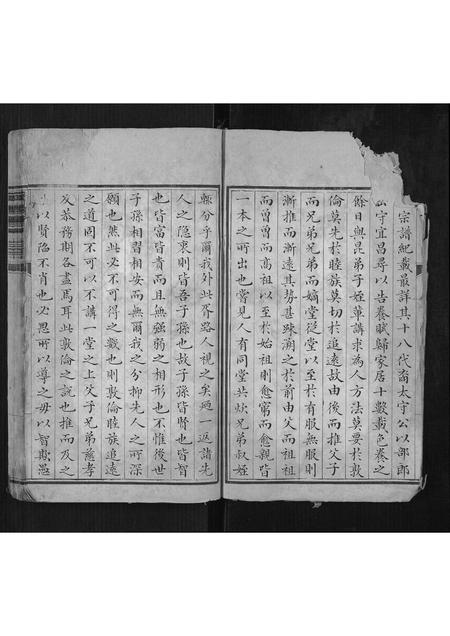 宗譜紀載最詳其十八代裔太守公以部郎
守宜昌尋以告養賦歸家居十數載色養之
餘日與昆弟子姪輩講求為人方法莫要於敦
倫莫先於睦族莫切於追遠故由後而推父子
而兄弟兄弟而嫡堂從堂以至於有服無服則
漸推而漸遠其勢甚踈溯之於前由父而祖祖
而曾曾而高祖以至於始祖則愈窮而愈親皆
一本之所出也嘗見人有同堂共炊兄弟叔姪
輒分乎爾我外此胥路人視之矣過一返諸先
人之隱衷則皆吾子孫也故子孫皆賢也皆智
也皆富皆貴而且無強弱之相形也不惟後世
子孫相習相安而無爾我之分抑先人之所深
願也然此必不可得之數也則敦倫睦族追遠
之道固不可以不講一堂之上父子兄弟慈孝
友恭務期各盡焉耳此敦倫之說也推而及之
以賢陷不肖也必思所以導之毋以智欺愚